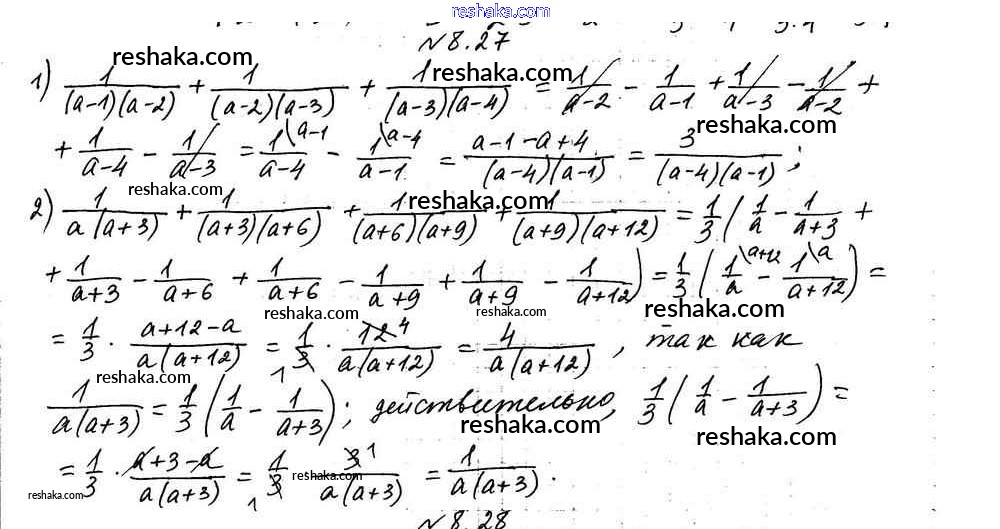 reshaka.com
№8.27
reshaka.com reshaka.com reshaka.com
1) 1/((a-1)(a-2)) + 1/((a-2)(a-3)) + 1/((a-3)(a-4)) = 1/(a-2) - 1/(a-1) + 1/(a-3) - 1/(a-2) +
reshaka.com
+ 1/(a-4) - 1/(a-3) = 1\a-1/(a-4) - 1\a-4/(a-1) = (a-1-a+4)/((a-4)(a-1)) = 3/((a-4)(a-1));
reshaka.com reshaka.com
2) 1/(a(a+3)) + 1/((a+3)(a+6)) + 1/((a+6)(a+9)) + 1/((a+9)(a+12)) = 1/3 (1/a - 1/(a+3) +
+ 1/(a+3) - 1/(a+6) + 1/(a+6) - 1/(a+9) + 1/(a+9) - 1/(a+12)) = 1/3 (1\a+12/a - 1\a/(a+12)) =
reshaka.com reshaka.com reshaka.com
= 1/3 · (a+12-a)/(a(a+12)) = 1/3 1 · 12 4/(a(a+12)) = 4/(a(a+12)), так как
reshaka.com reshaka.com
1/(a(a+3)) = 1/3 (1/a - 1/(a+3)); действительно, 1/3 (1/a - 1/(a+3)) =
reshaka.com reshaka.com
= 1/3 · (a+3-a)/(a(a+3)) = 1/3 1 3 1/(a(a+3)) = 1/(a(a+3)).
reshaka.com reshaka.com
№8.28